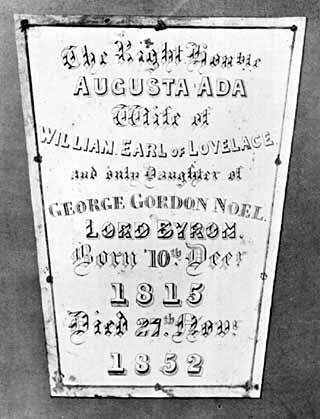 The Right Honble
AUGUSTA ADA
Wife of
WILLIAM, EARL OF LOVELACE,
and only Daughter of
GEORGE GORDON NOEL,
LORD BYRON.
Born 10th Decr
1815
Died 27th Novr
1852